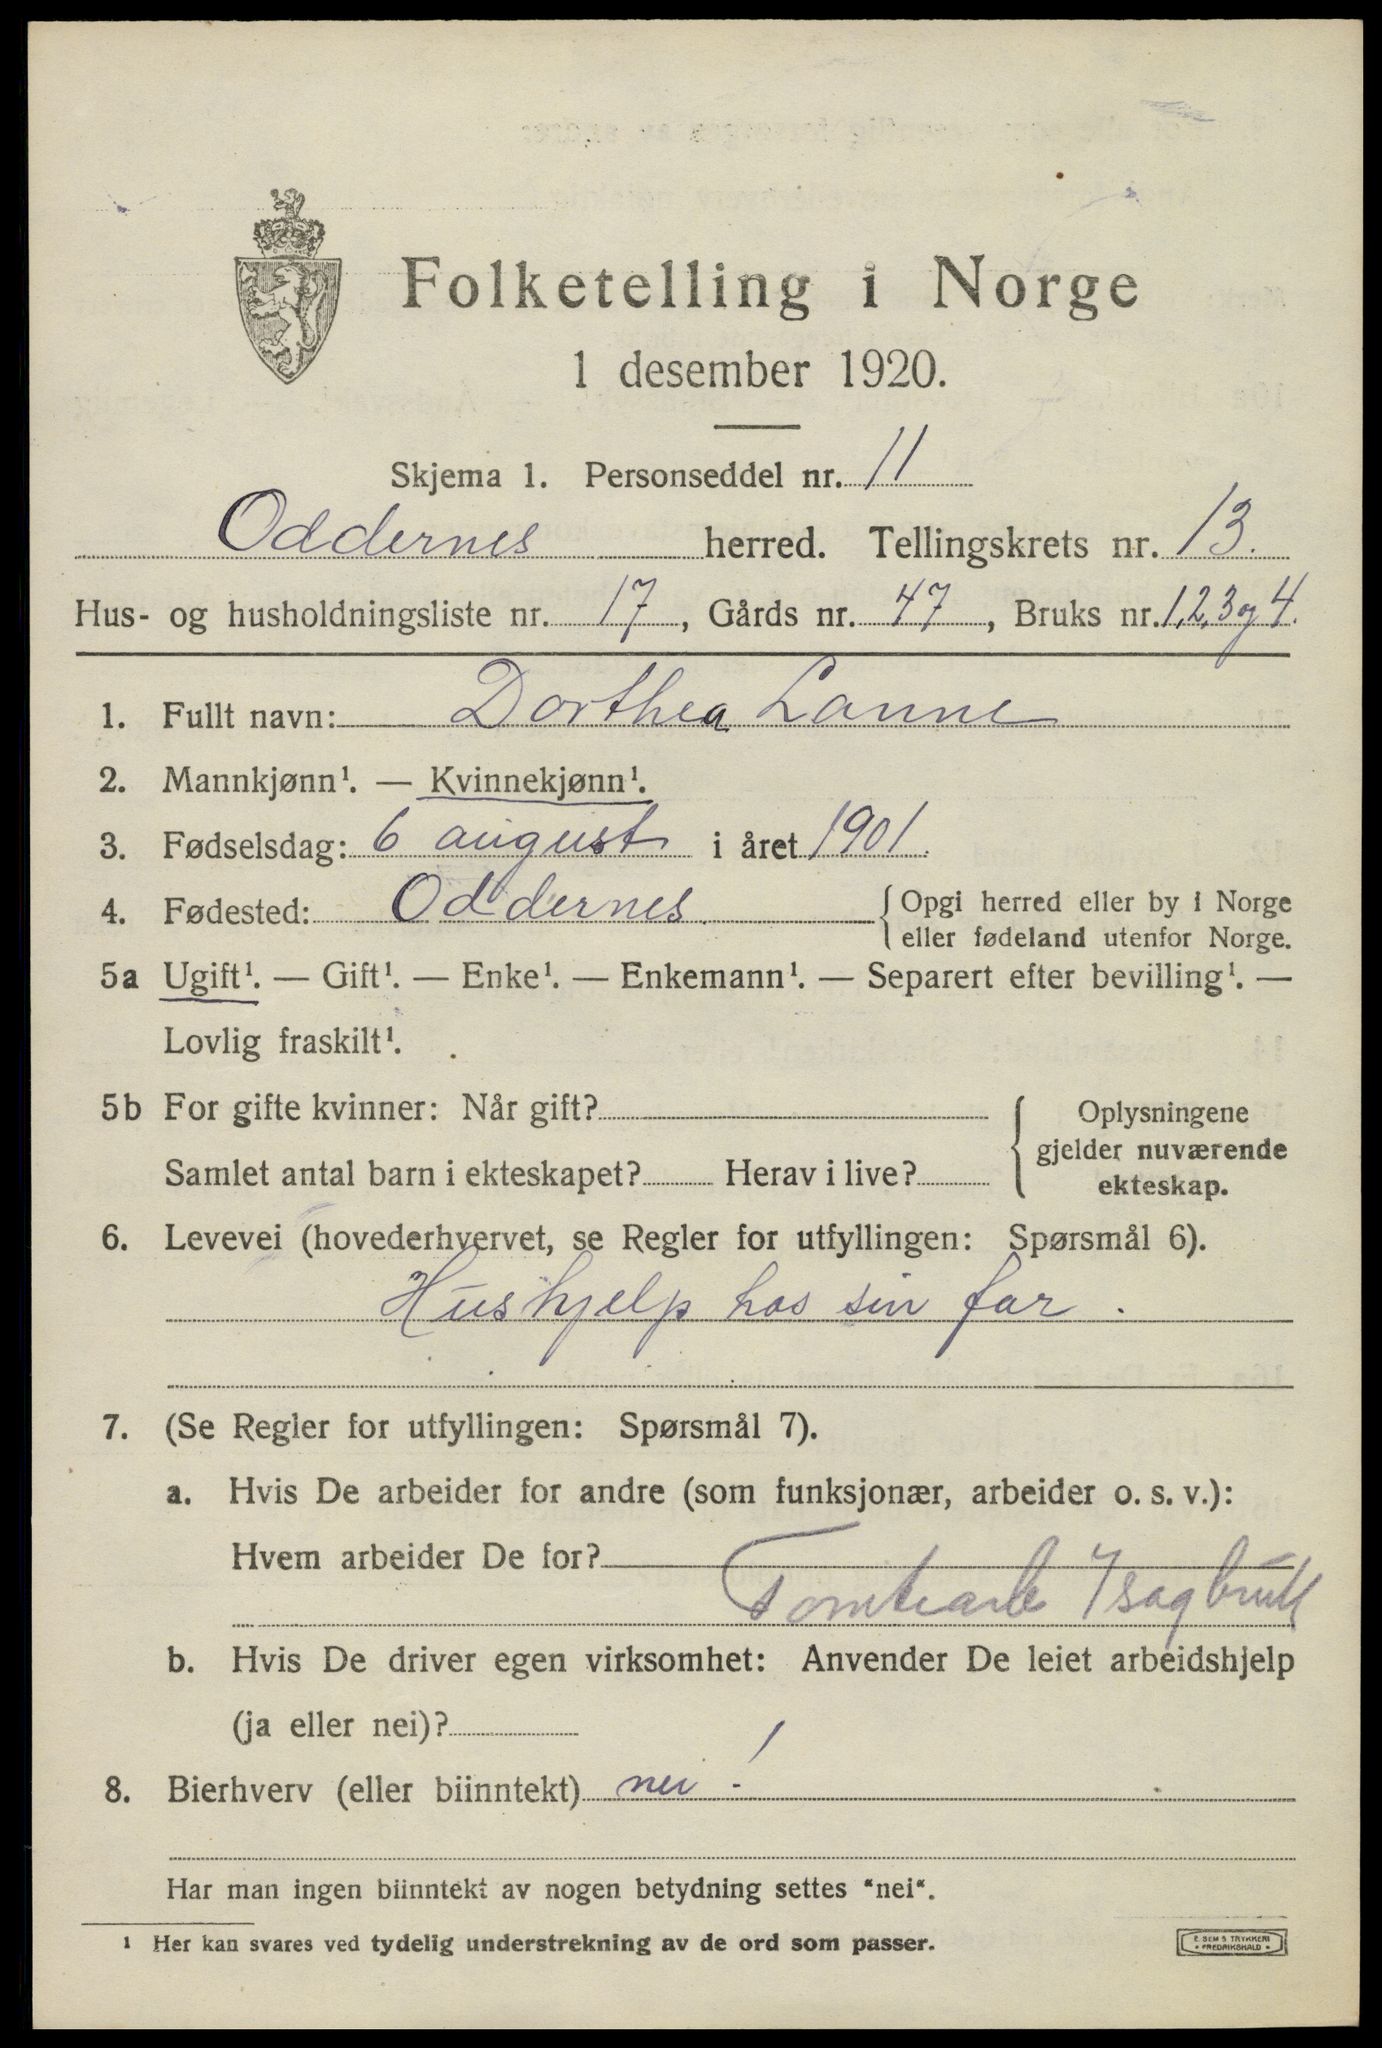 Folketelling i Norge
1 desember 1920.
Skjema 1. Personseddel nr. 11
Oddernes herred. Tellingskrets nr. 13.
Hus- og husholdningsliste nr. 17, Gårds nr. 47, Bruks nr. 1, 2, 3 og 4.
1. Fullt navn: Dorthea Lanne
2. Mannkjønn¹. — Kvinnekjønn¹.
3. Fødselsdag: 6 august i året 1901.
4. Fødested: Oddernes. { Opgi herred eller by i Norge
eller fødeland utenfor Norge.
5a Ugift¹. — Gift¹. — Enke¹. — Enkemann¹. — Separert efter bevilling¹. —
Lovlig fraskilt¹.
5b For gifte kvinner: Når gift?
Samlet antal barn i ekteskapet? Herav i live?
{ Oplysningene
gjelder nuværende
ekteskap.
6. Levevei (hovederhvervet, se Regler for utfyllingen: Spørsmål 6).
Hushjelp hos sin far.
7. (Se Regler for utfyllingen: Spørsmål 7).
a. Hvis De arbeider for andre (som funksjonær, arbeider o. s. v.):
Hvem arbeider De for?
b. Hvis De driver egen virksomhet: Anvender De leiet arbeidshjelp
(ja eller nei)?
8. Bierhverv (eller biinntekt) nei!
Har man ingen biinntekt av nogen betydning settes "nei".
¹ Her kan svares ved tydelig understrekning av de ord som passer.
E. SEM'S TRYKKERI
• FREDRIKSHALD •